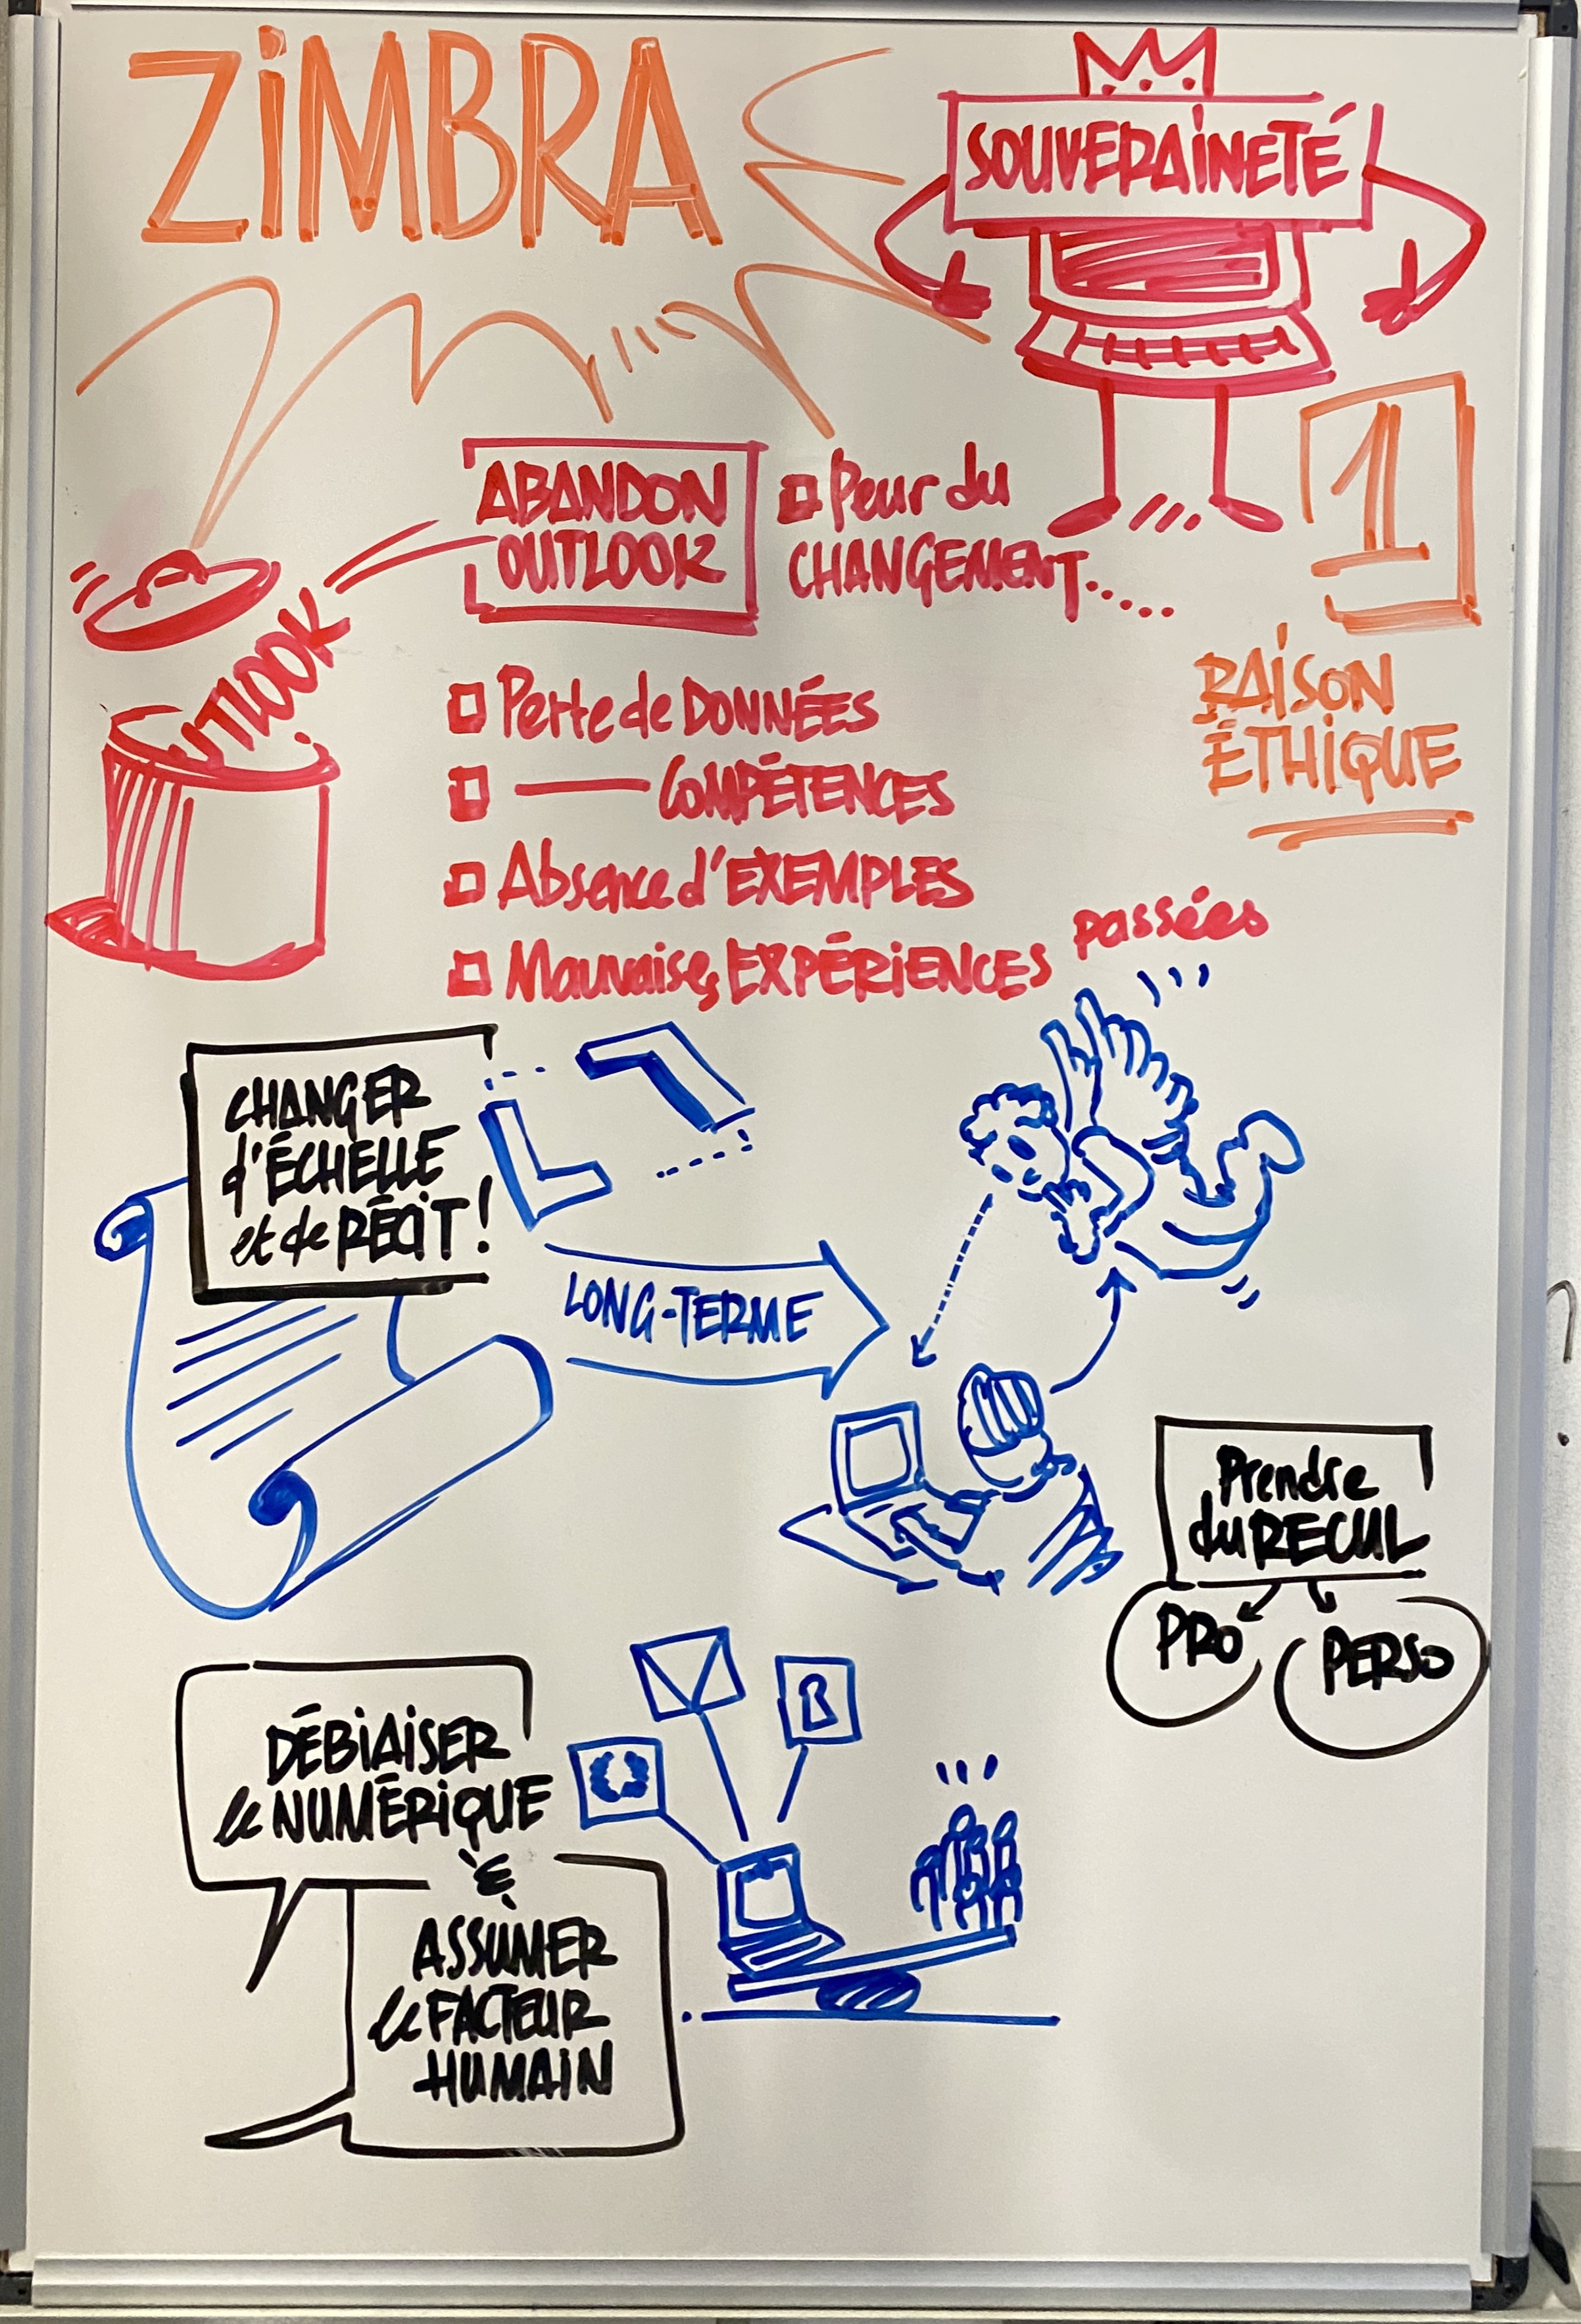 ZiMBRA
SOUVERAiNETÉ
1
RAiSON
ÉTHiQUE
ABANDON
OUTLOOK
Peur du
CHANGEMENT.....
OUTLOOK
Perte de DONNÉES
—— COMPÉTENCES
Absence d'EXEMPLES
Mauvaises EXPÉRiENCES passées
CHANGER
d'ÉCHELLE
et de RÉCiT !
LONG-TERME
Prendre
du RECUL
PRO
PERSO
DÉBiAiSER
le NUMÉRiQUE
&
ASSUMER
le FACTEUR
HUMAiN